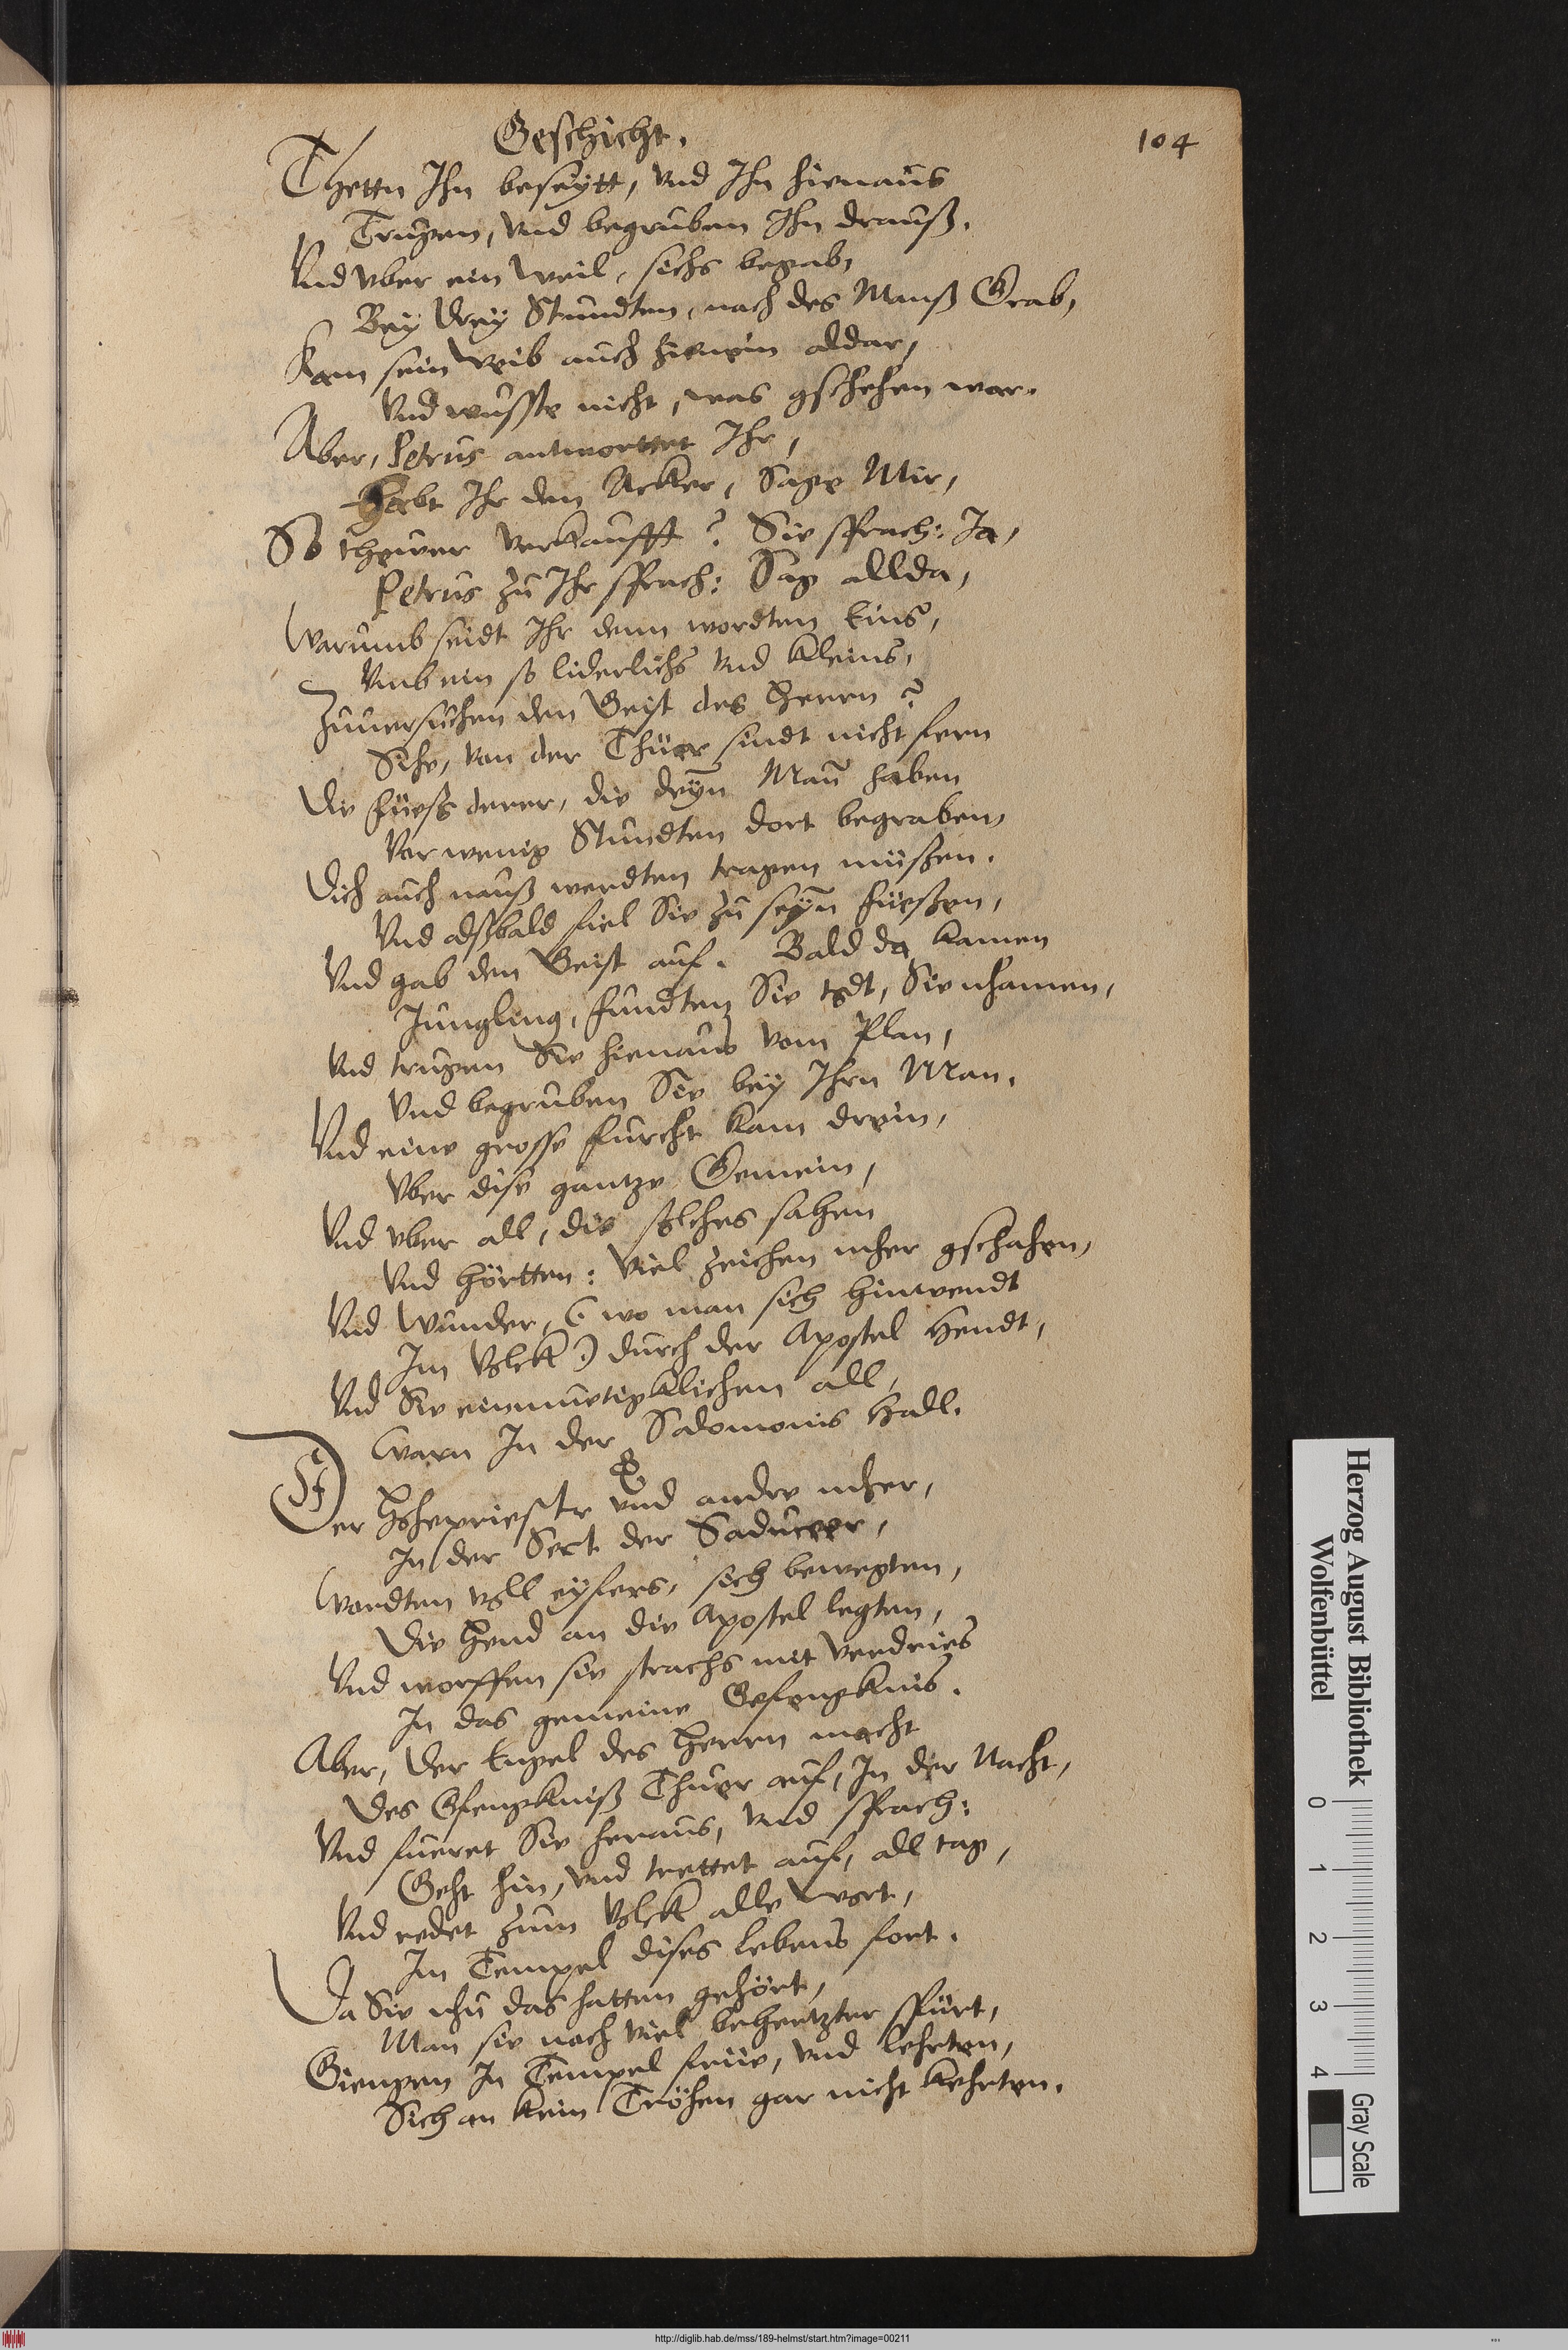 Geschicht.
104
Thetten Ihn beseytt, vnd Ihn hienaus
Trugen, vnd begruben Ihn drauß.
Vnd vber ein weil, sichs begab,
Bey drey Stundten, nach des Manß Grab,
Kam sein weib auch hienein aldar,
Vnd wusste nicht, was gschehen war.
Aber, Petrus antworttet Ihr,
Habt Ihr den Acker, Sage Mir,
So thewer verkaufft? Sie sprach: Ja,
Petrus zu Ihr sprach: Sag allda,
Warumb seidt Ihr denn wordten Eins,
Vmb ein so liderlichs vnd kleins,
Zuuersuchen den Geist des Herrn?
Sihe, von der Thüer sindt nicht fern
Die füeß derer, die deyn̄ Man̄ haben
Vor wenig Stundten dort begraben,
Dich auch nauß werdten tragen müßen.
Vnd alßbald fiel Sie zu seyn̄ füeßen,
Vnd gab den Geist auf. Bald da kamen
Jungling, fundten Sie todt, Sie nhamen,
Vnd trugen Sie hienaus vom Plan,
Vnd begruben Sie bey Ihrn Man.
Vnd eine grosse furcht kam drein,
Vber dise gantze Gemein,
Vnd vber all, die solches sahen
Vnd hörtten: Viel zeichen mher gschahen,
Vnd Wunder, (wo man sich hinwendt
Im Volck) durch der Apostel Hendt,
Vnd Sie einmuetigklichen all,
Warn In der Salomonis Hall.
Der Hohepriestr vnd andre mher,
In der Sect der Saduceer,
Wordten voll eyfers, sich bewegten,
Die Hend an die Apostel legten,
Vnd worffen sie strachs mit verdries
In das gemeine Gefengknis.
Aber, der Engel des Herrn macht
Des Gfengkniß Thuer auf, In der Nacht,
Vnd fueret Sie heraus, vnd sprach:
Geht hin, vnd trettet auf, all tag,
Vnd redet zum Volck alle wort,
Im Tempel dises lebens fort.
Da Sie nhu das hatten gehört,
Man sie noch viel behertzter spürt,
Giengen In Tempel früe, vnd lehrten,
Sich an kein Tröhen gar nicht kehrten.
Herzog August Bibliothek
Wolfenbüttel
0 1 2 3 4
Gray Scale
http://diglib.hab.de/mss/189-helmst/start.htm?image=00211